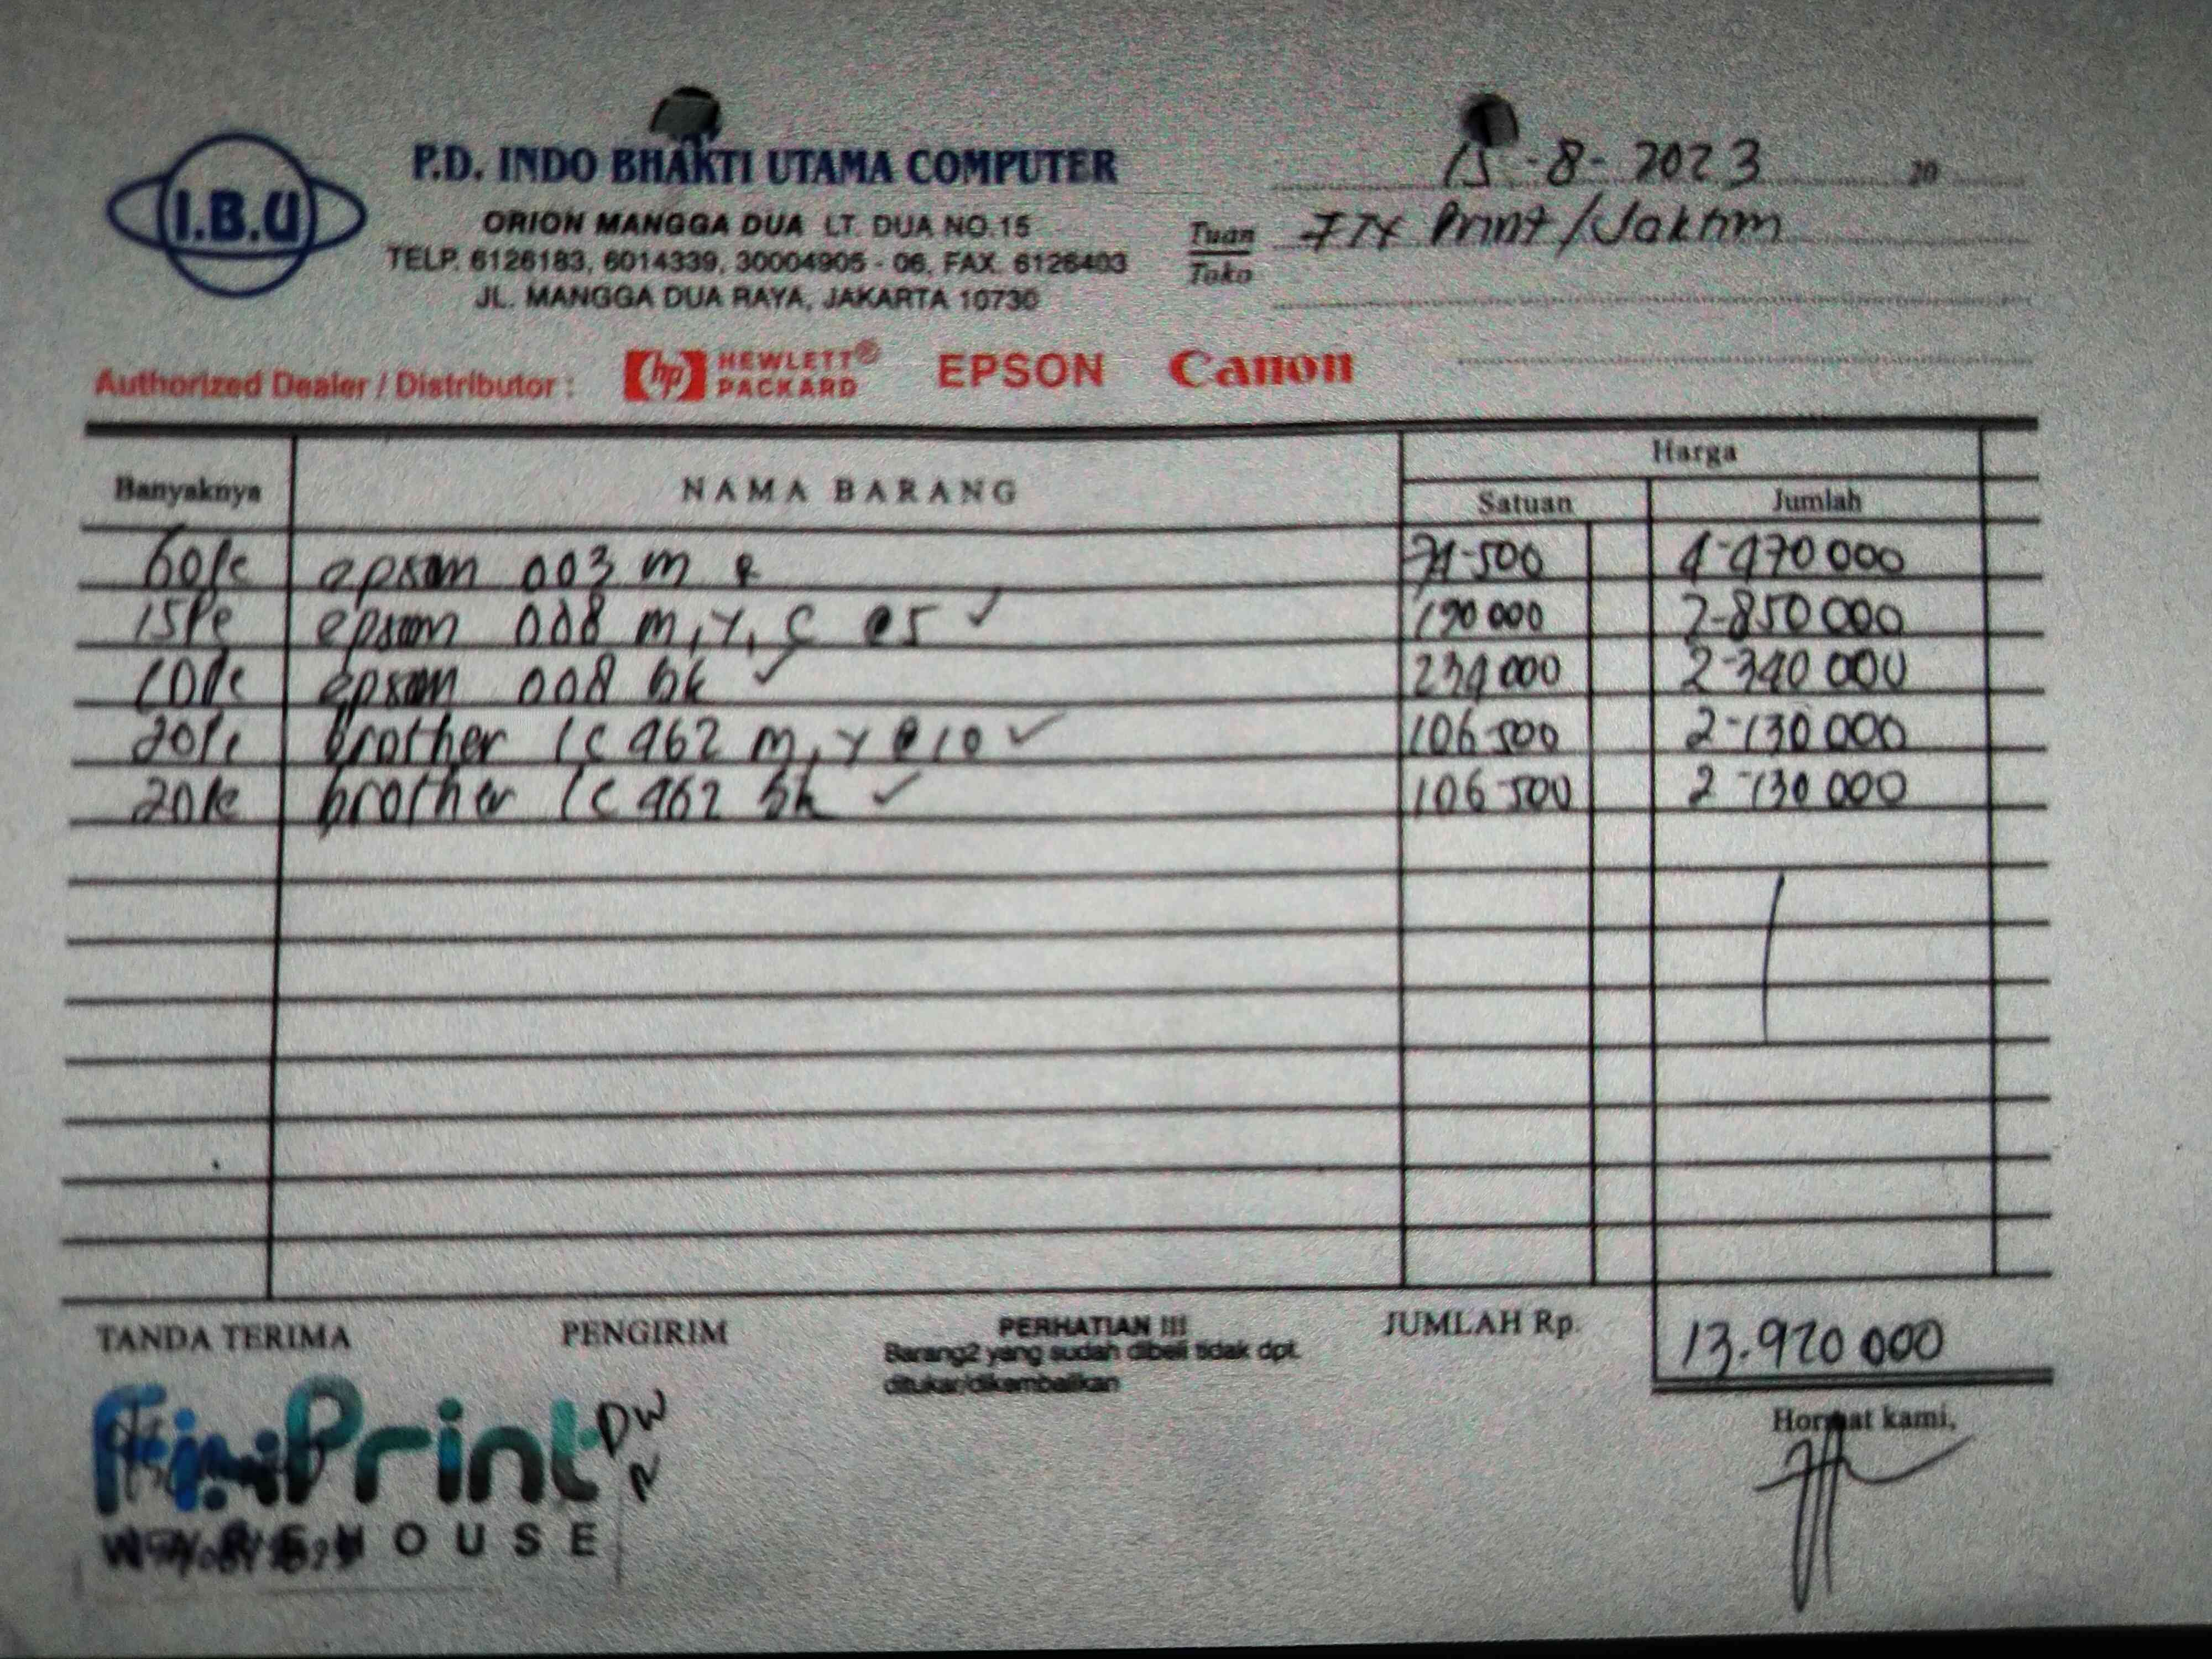 I.B.U
P.D. INDO BHAKTI UTAMA COMPUTER
ORION MANGGA DUA LT. DUA NO.15
TELP. 6126183, 6014339, 30004905 - 06, FAX. 6126403
JL. MANGGA DUA RAYA, JAKARTA 10730
15-8-2023 20
Tuan
Toko
Print/Jaktim
Authorized Dealer / Distributor : hp HEWLETT® PACKARD EPSON Canon
Banyaknya NAMA BARANG Harga
Satuan Jumlah
epson 003 m 74-500 4-470 000
epson 008 m, y, c @5 ✓ 190 000 2-850 000
epson 008 bk ✓ 234 000 2-340 000
brother lc 462 m, y @10 ✓ 106 500 2-130 000
brother lc 462 bk ✓ 106 500 2-130 000
TANDA TERIMA PENGIRIM PERHATIAN !!! JUMLAH Rp. 13.920 000
Barang2 yang sudah dibeli tidak dpt.
ditukar/dikembalikan
Hormat kami,
Print
HOUSE